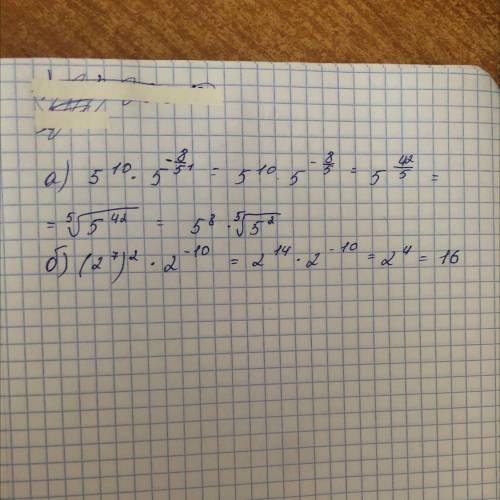 а) 5^10 · 5^(-8/5^1) = 5^10 · 5^(-8/5) = 5^(42/5) =
= ⁵√(5^42) = 5^8 · ⁵√(5^2)
б) (2^7)^2 · 2^-10 = 2^14 · 2^-10 = 2^4 = 16